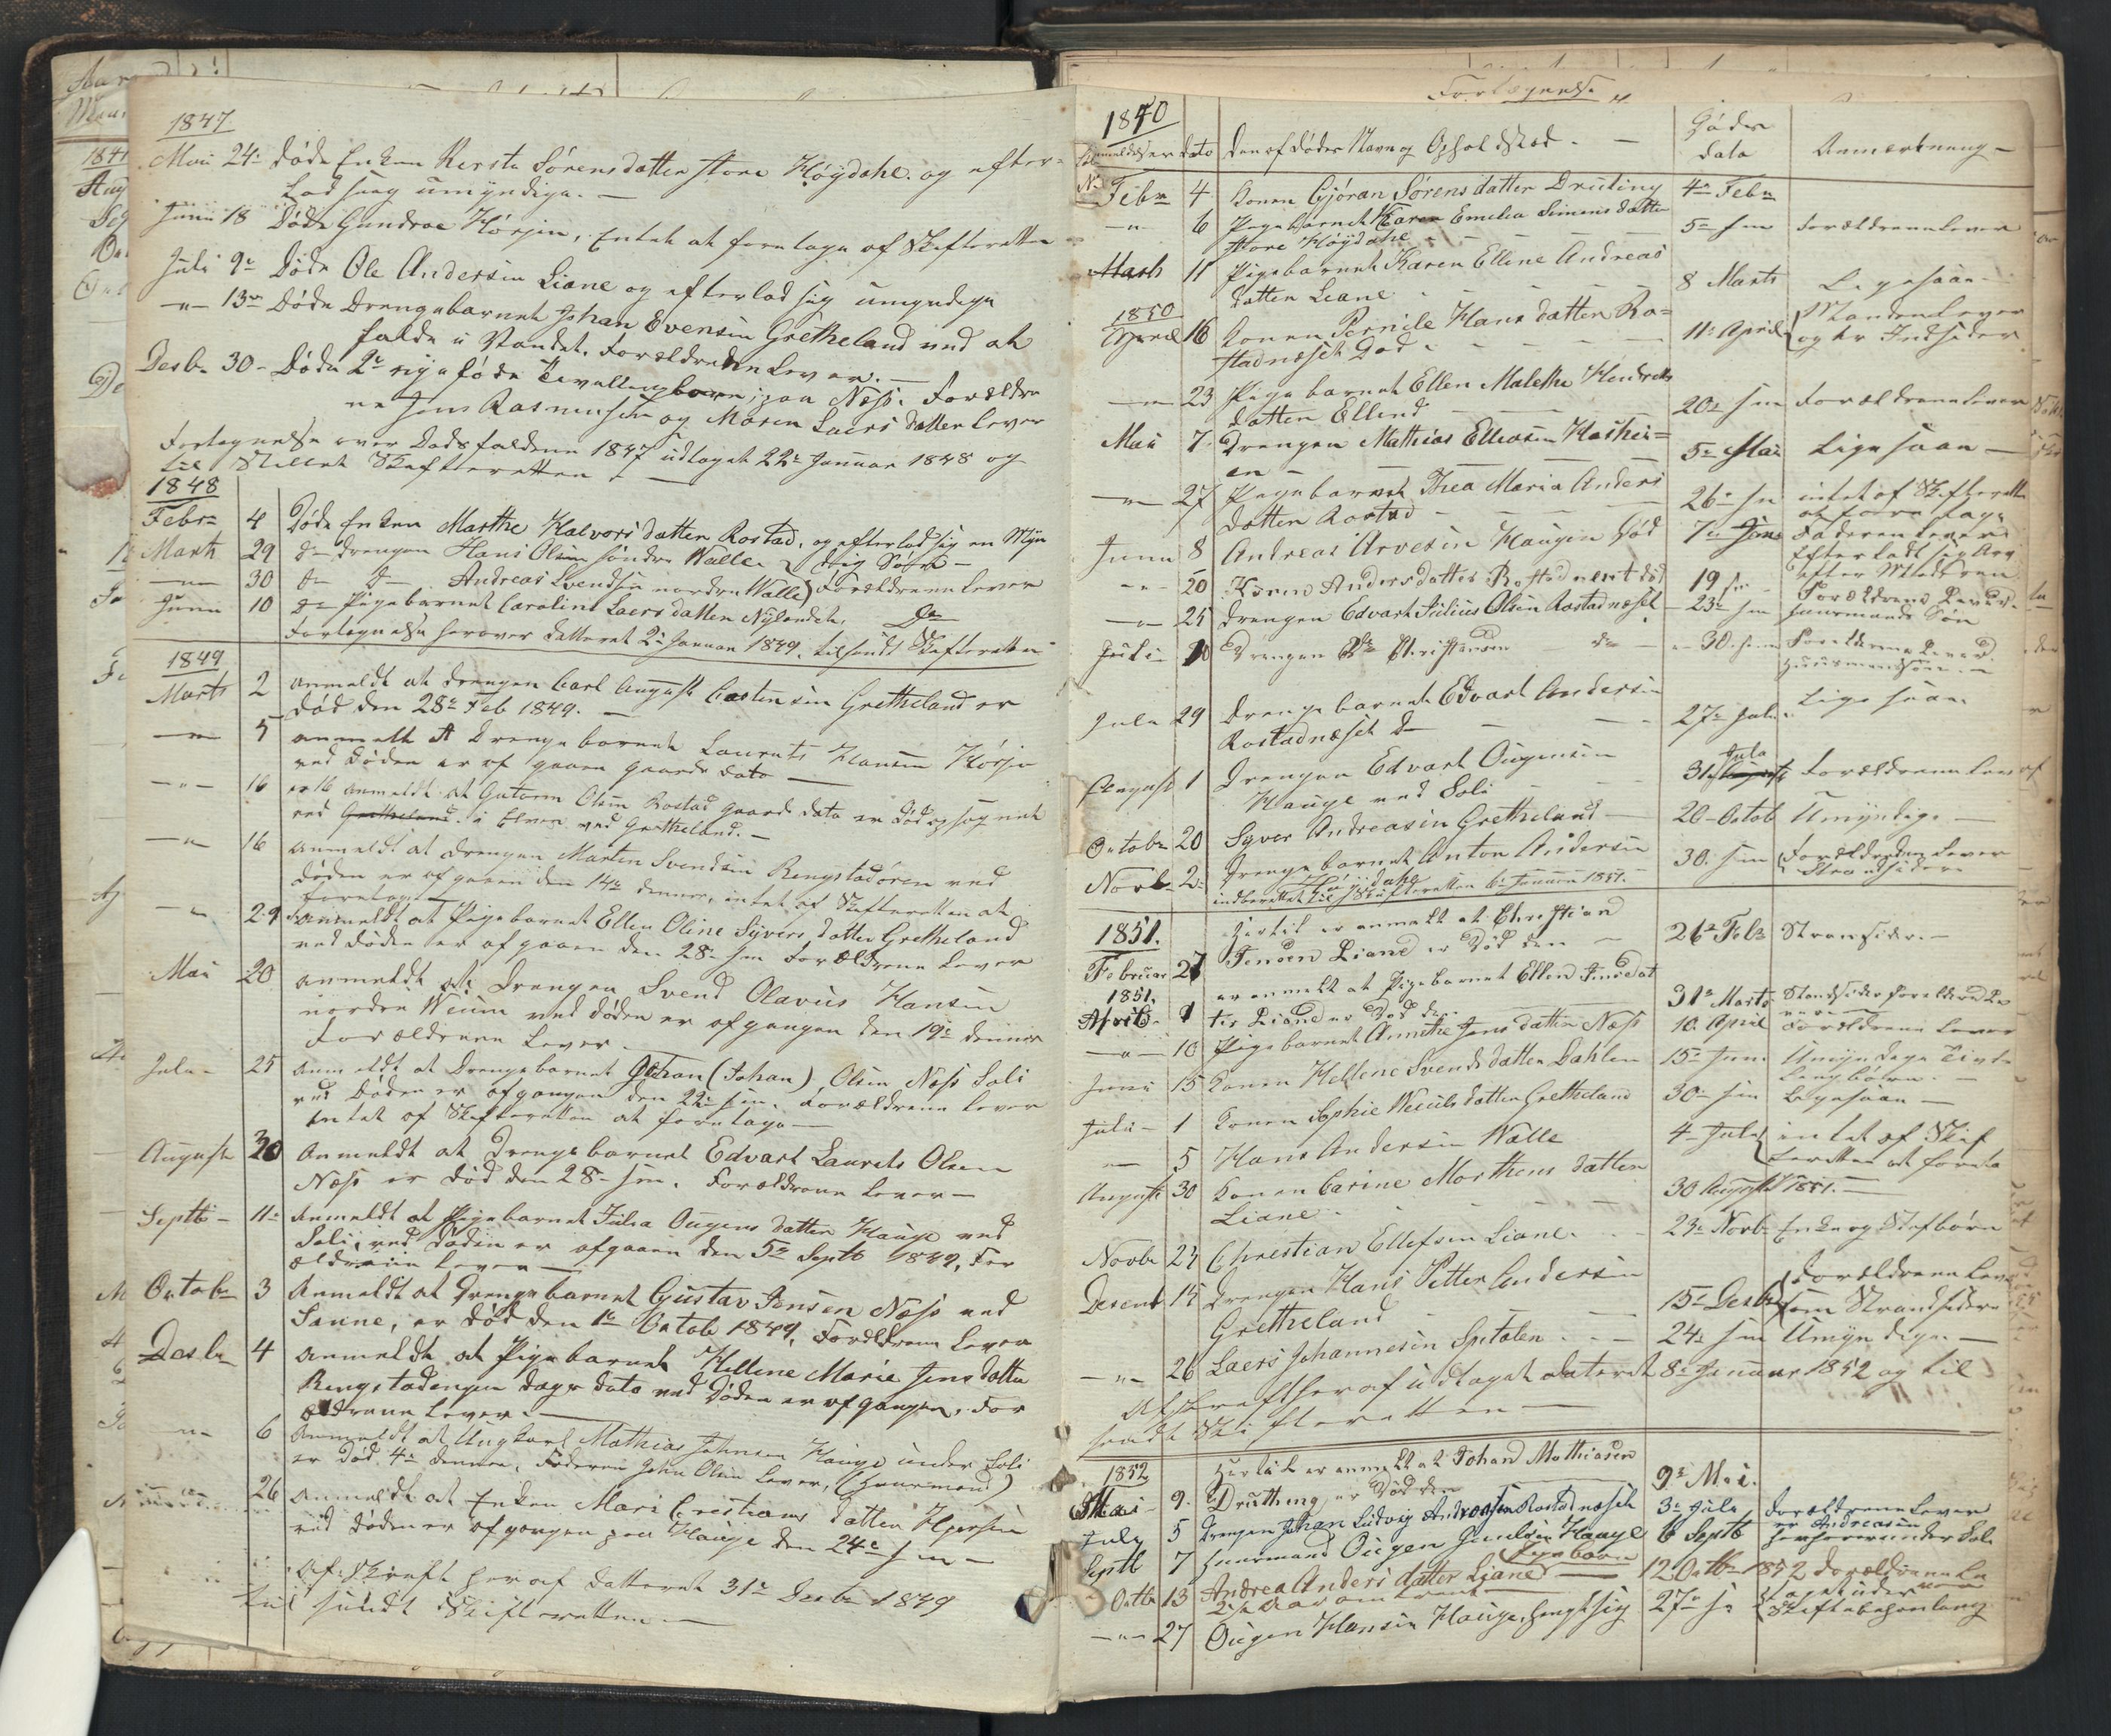 1847
Mai 24- døde Enken Kersta Sørensdatter store Høydahl. og efter-
lod sig umyndige. —
Juni 18 Døde Gundroe Hørjin, Entet at foretage af Skifteretten
Juli 9- Døde Ole Andersin Liane og efterlod sig umyndige
-"- 13- Døde Drengebarnet Johan Evensin Grétheland ved at
falde i Vandet. Forældrene Lever. —
Desb- 30- Døde 2- nye føde Tevallingbørn; paa Næss. Forældre
ne Jens Rasmusen og Maren Laers datter Lever
Fortegnelse over Dødsfaldene 1847 udtaget 22- Januar 1848 og
til Stillet Skifteretten —
1848
Febr- 4 Døde Enken Marthe Halvors datter Rostad, og efterlod sig en Myn
Marts 29 d- drengen Hans Olsin søndre Walle. dig Søn —
-"- 30 d- d- Andreas Svendsin nordre Walle) Forældrene Lever
Juni 10 d- Pigebarnet Caroline Laers datter Nylandet. D-
Fortegnelse herover datteret 2- Januar 1849. tilsendt Skifteretten
1849
Marts 2 anmeldt at drengen Carl August Carstensin Gretheland er
død den 28- Feb 1849. —
-"- 5 anmelt At Drengebarnet Laurits Hansin Hørjin
ved Døden er af gaaen gaards dato —
-"- 16 anmeldt at Gutorm Olsin Rostad gaards dato er død og fognet
ved Gretheland. i Elven ved Gretheland. —
-"- 16 anmeldt at drengen Marten Svendsin Rengstadøren ved
Døden er af gaaen den 14- dennes, intet af Skifteretten at
foretage —
-"- 29 anmeldt at Pigebarnet Ellen Oline Syvers datter Gretheland
ved Døden er af gaaen den 28- hm Forældrene Lever
Mai 20 anmeldt at Drengen Svend Olavus Hansin
nordre Weium ved døden er afgangen den 19- dennes
Forældrene Lever —
Juli- 25 anmeldt at Drengebarnet Johan (Johan) Olsin Næss Soli
ved Døden er afgangen den 22- hm. Forældrene Lever
Entet af Skifteretten at foretage —
August 30 Anmeldt at Drengebarnet Edvart Laurits Olsen
Næss er død den 28- hm. Forældrene Lever —
Septb- 11- Anmeldt at Pigebarnet Julia Ougens datter Hauge ved
Soli, ved Døden er afgaaen den 5- Septb 1849, For
ældrene Lever —
Octob- 3 Anmeldt at Drengebarnet Gustav Jensen Næss ved
Sanne, er død den 1- Octob 1849, Forældrene Lever
Desb- 4 anmeldt at Pigebarnet Hellene Marie Jens datter
Rengstadengen dags dato ved Døden er afgangen, For
ældrene Lever —
-"- 6 Anmeldt at Ungkarl Mathias Johnsen Hauge under Soli
er død 4- dennes, Faderen John Olsin Lever, (Huusmand)
-"- 26 Anmeldt at Enken Mari Crestians datter
ved døden er afgangen paa Hauge den 24- hm —
Afskreft heraf datteret 31- Desbr 1849
til sendt Skifteretten —
Fortegnelse
1850
Anmeldelser dato Den af Dødes Navn og Opholdsted. — Døds dato Anmærkning —
Febr- 4 Konen Gjøran Sørens datter Druting 4- Feb-
-"- 6 Pigebarnet Karen Emelia Simens datter
store Høydahl - - 5- hm Forældrene Lever
Marts 11 Pigebarnet Karen Ellene Andreas
datter Liane - - 8 Marts Ligesaa —
1850
April 16 Konen Pernile Hans datter Ro=
stadnæset Død - - 11- April Manden Lever
og er Indsider
-"- 23 Pige barnet Ellen Malethe Hendreks
datter Ellend 20- hm Forældrene Lever
Mai 7- Drengen Mathias Elleasin
en — 5- Mai Ligesaa —
-"- 27 Pigebarnet Thea Maria Anders
datter Rostad - - 26- hm intet af Skifterett
at foretage
Juni 8 Andreas Arvesin Haugen Død 7- Juni Faderen Lever
-"- 20 Karen Andersdatter Rostadneset død 19 hm Efterladt sig Arv
efter Moderen
-"- 25 Drengen Edvart Julius Olsin Rostadnæset - 23- hm Forældrene Lever
huusmands Søn
Juli- 30 Drengen Christiansen d- -"- 30. hm Foreldrene Lever
Huusmandsøn —
Juli 29 Drengebarnet Edvart Andersin
Rostadnæset D- 27- Juli Ligesaa.
August 1 Drengen Edvart Ougensin
Hauge ved Soli 31 Julo Forældrene Lever
Octob- 20 Syver Andreasin Gretheland — 20- Octob Umyndige —
Novb- 2- Drengebarnet Anton Andersin
Høydahl 30. hm Forældrene Lever
Strandsidere
indberettet til Skifteretten 6- Januar 1851. —
1851.
Februar 27 Hertil er anmelt at Christian
Jensen Liane er Død den — 26- Feb- Stransider. —
1851.
April- 1 er anmelt at Pigebarnet Ellen Jensdat
ter Liane er Død den 31- Marts Standsider foreldrene Le
-"- 10 Pigebarnet Annethe Jens datter Næss 10. April Forældrene Lever
Juni 15 Konen Hellene Svends datter Dahlen 15- Juni Umyndige
Juli - 1 Konen Sophie Weeuls datter Gretheland 30- hm Ligesaa —
-"- 5 Hans Andersin Walle 4- Juli intet af Skif
teretten at foreta
August 30 Konen Carine Morthens datter
Liane - - 30 August 1851. —
Novbr 24 Christian Ellefsen Liane. - - 23- Novb- Enke og Stefbørn
Desemb 15 Drengen Hans Petter Andersin
Gretheland 15- Desb- Forældrene Lever
som Strandsidere
-"- 26 Laers Johannesin Spitalen - - 24- hm Umyndige. —
Afskreft heraf udtaget dateret 8- Januar 1852 og til
sendt Skifteretten —
1852
Mai- 9. Hertil er anmelt at Johand Mathiasen
Druthing, er Død den 9- Mai.
July 5 Drengen Johan Ludvig Andreasen Rostadnæset 3- Jula Forældrene Lever
er Andreasin
Septb 7 Huusmand Ougen Hauge 6 Septb under Soli
Octb 13 Andrea Anders datter Liane — 12 Octb- 1852 Forældrene Le
-"- 27 Ougen Hansin Hauge, hengt sig 27- h-